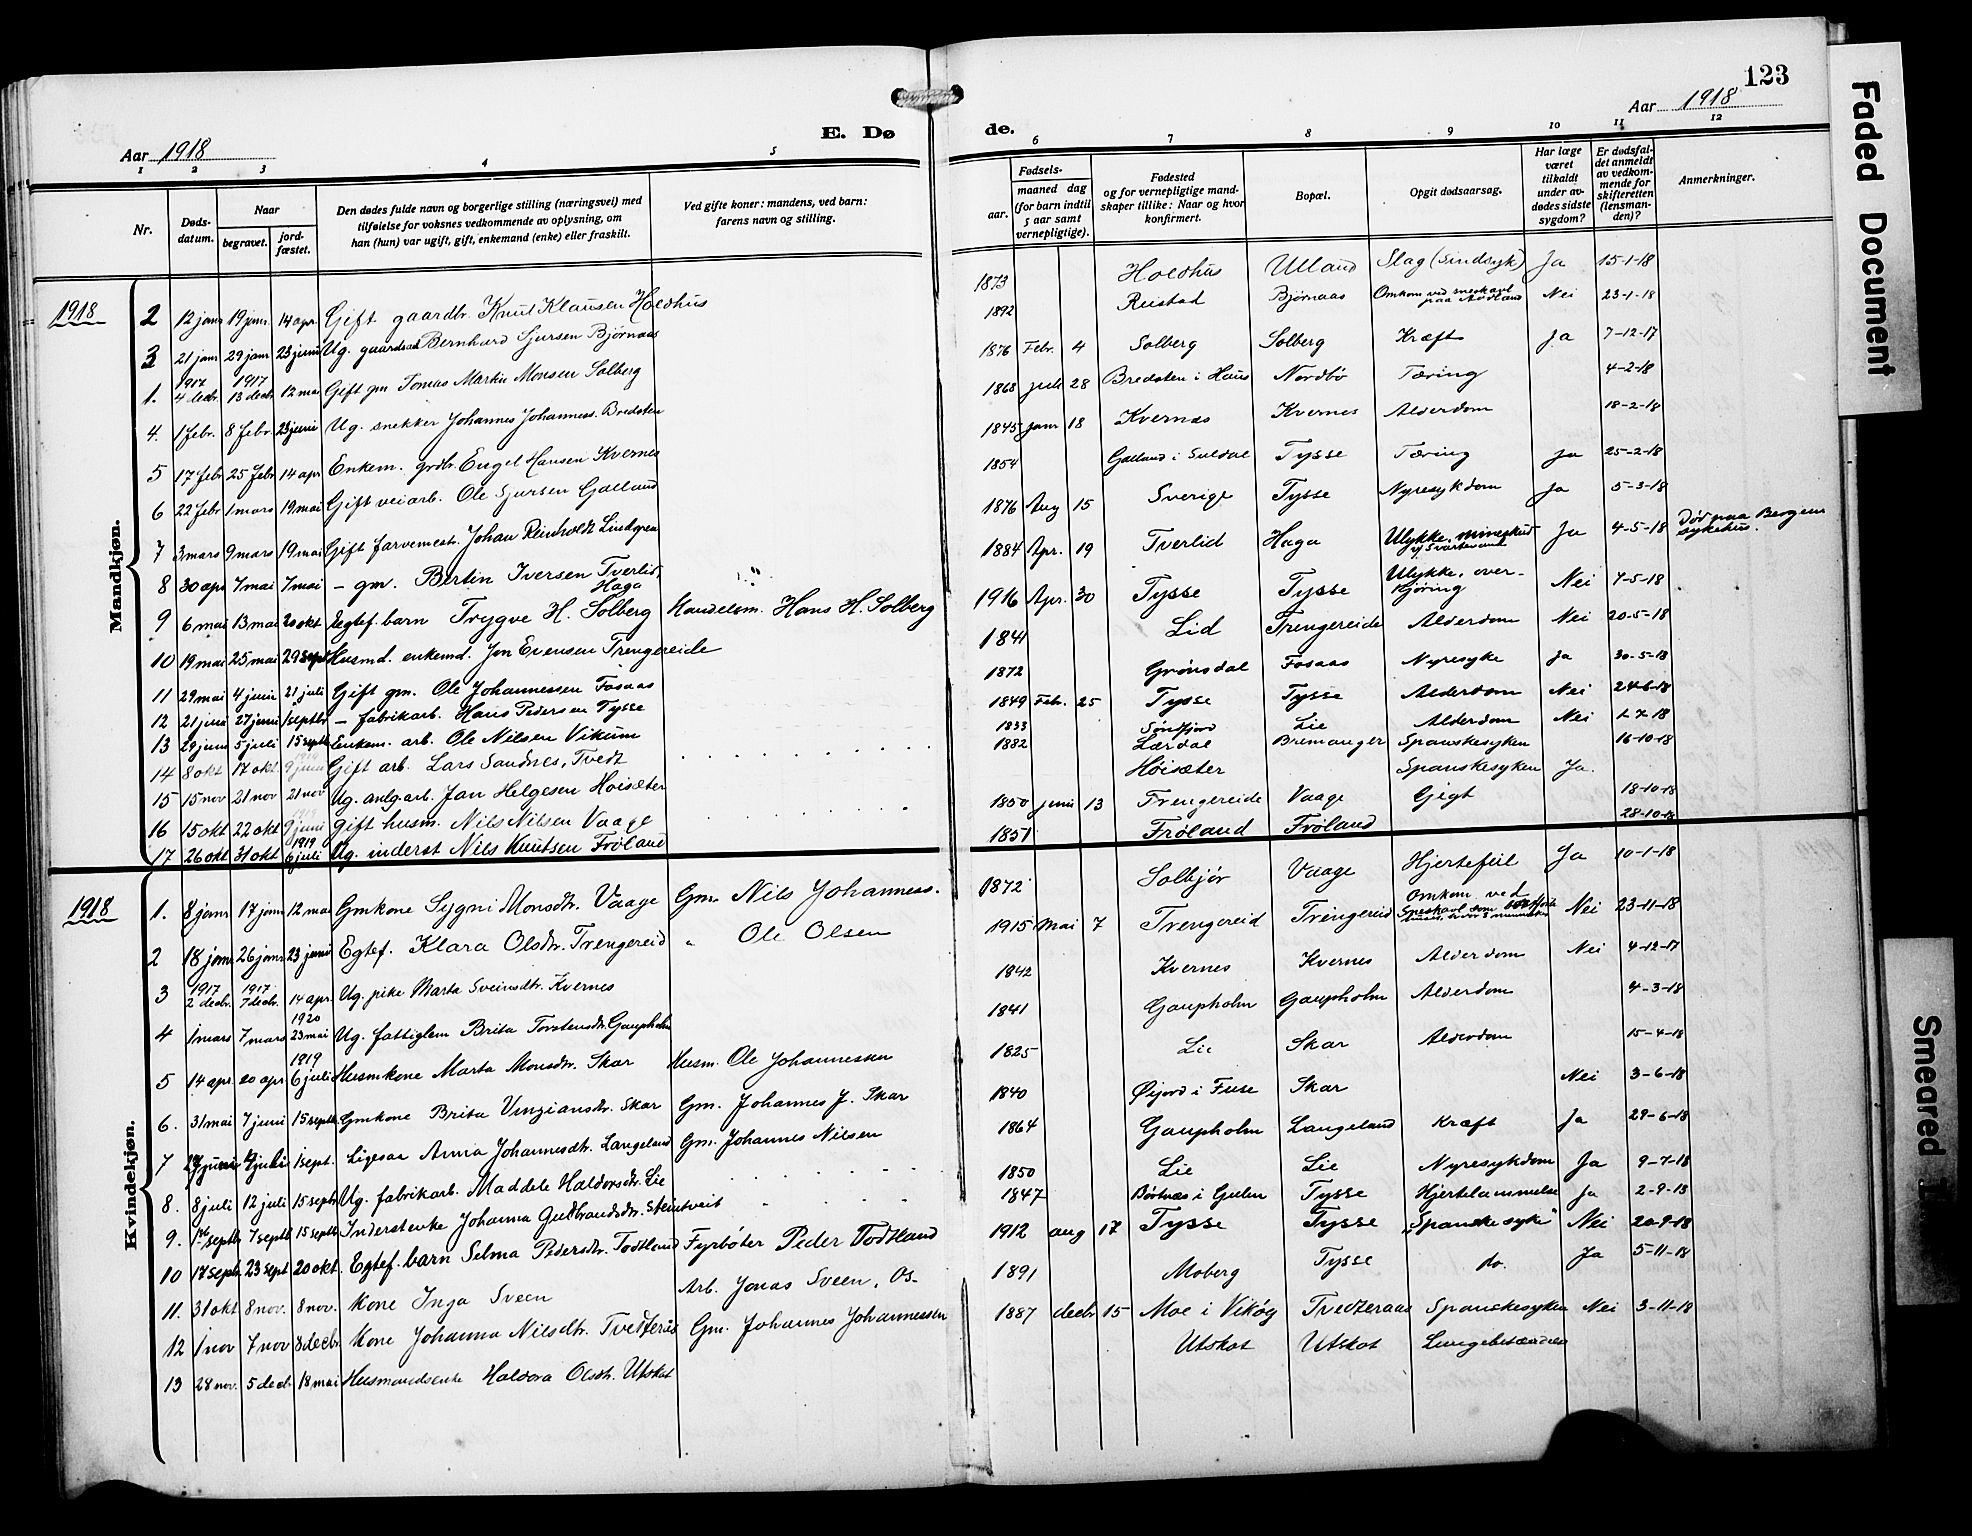 123
Aar 1918
E. Dø
de.
Aar 1918
1 2 3 4 5
6 7 8 9 10 11 12
Nr.
Døds-
datum.
Naar
begravet.
jord-
fæstet.
Den dødes fulde navn og borgerlige stilling (næringsvei) med
tilføielse for voksnes vedkommende av oplysning, om
han (hun) var ugift, gift, enkemand (enke) eller fraskilt.
Ved gifte koner: mandens, ved barn:
farens navn og stilling.
Fødsels-
aar.
maaned dag
(for barn indtil
5 aar samt
vernepligtige).
Fødested
og for vernepligtige mand-
skaper tillike: Naar og hvor
konfirmert.
Bopæl.
Opgit dødsaarsag.
Har læge
været
tilkaldt
under av-
dødes sidste
sygdom?
Er dødsfal-
det anmeldt
av vedkom-
mende for
skifteretten
(lensman-
den)?
Anmerkninger.
1918
Mandkjøn.
2 12 janr 19 janr 14 apr. Gift gaardbr. Knut Klausen Holdhus 1873 Holdhus Ulland Slag (sindsyk) Ja 15-1-18
3 21 janr 29 janr 23 juni Ug. Bernhard Sjursen Bjørnaas 1892 Rustad Bjørnaas Omkom ved sneskavl paa Nei 23-1-18
1. 1917 4 decbr. 1917 13 decbr 12 mai Gift gm Tomas Martin Monsen Solberg 1876 Febr. 4 Solberg Solberg Kræft Ja 7-12-17
4. 1 febr. 8 febr. 23 juni Ug. snekker Johannes Johanness. Bredsten 1868 juli 28 Bredsten i Haus Nordbø Tæring 4-2-18
5 17 febr 25 febr 14 apr Enkem. grdbr. Engel Hansen Kvernes 1845 janr 18 Kvernes Kvernes Alderdom 18-2-18
6 22 febr 1 mars 19 mai Gift veiarb. Ole Sjursen Galland 1854 Galland i Suldal Tysse Tæring Ja 25-2-18
7 3 mars 9 mars 19 mai Gift farvemest. Johan Reinholdt Lindgren 1876 Aug 15 Sverige Tysse Nyresykdom Ja 5-3-18
8 30 apr 7 mai 7 mai - gm. Bertin Iversen Tverlid, Haga " 1884 Apr. 19 Tverlid Haga Ulykke, mineskud Ja 4-5-18 Død paa Bergens sykehus.
9 6 mai 13 mai 20 okt Egtef. barn Trygve H. Solberg Handelsm. Hans H. Solberg 1916 Apr. 30 Tysse Tysse Ulykke, over-kjøring Nei 7-5-18
10 19 mai 25 mai 29 sept Husmd. enkemd. Jon Evensen Trengereide 1841 Lid Trengereide Alderdom Nei 20-5-18
11 29 mai 4 juni 21 juli Gift gm. Ole Johannessen Fosaas 1872 Grønsdal Fosaas Nyresyke Ja 30-5-18
12 21 juni 27 juni 1 septbr - fabrikarb. Hans Pedersen Tysse 1849 Febr. 25 Tysse Tysse Alderdom Nei 24-6-18
13 29 juni 5 juli 15 septb Enkem. arb. Ole Nilsen Vikum 1833 Søndfjord Lie Alderdom Nei 1-7-18
14 8 okt 17 okt 1919 9 juni Gift arb. Lars Sandnes, Tvedt 1882 Lærdal Bremanger Spanskesyken 16-10-18
15 15 nov 21 nov 21 nov Ug. anlg.arb. Jan Helgesen Høisæter Høisæter Spanskesyken Ja.
16 15 okt 22 okt 9 juni Gift husm. Nils Nilsen Vaage 1850 juni 13 Trengereide Vaage Gigt 18-10-18
17 26 okt 31 okt 1919 6 juli Ug. inderst Nils Knutsen Frøland 1851 Frøland Frøland 28-10-18
1918
Kvindekjøn.
1. 8 janr 17 janr 12 mai Gmkone Sygni Monsdtr. Vaage Gm. Nils Johanness. 1872 Solbjør Vaage Hjertefeil Ja 10-1-18
2 18 janr 26 janr 23 juni Egtef. Klara Olsdtr. Trengereid " Ole Olsen 1915 Mai 7 Trengereid Trengereid Omkom ved Sneskavl som Nei 23-11-18
3 1917 2 decbr. 1917 7 decbr. 14 apr. Ug. pike Marta Sveinsdtr. Kvernes 1842 Kvernes Kvernes Alderdom Nei 4-12-17
4 1 mars 7 mars 1920 23 mai Ug. fattiglem Brita Torstensdtr. Gaupholm 1841 Gaupholm Gaupholm Alderdom 4-3-18
5 14 apr. 20 apr 1919 6 juli Husmkone Marta Monsdtr. Skar Husm. Ole Johannessen 1825 Lie Skar Alderdom 15-4-18
6. 31 mai 7 juni 15 septb. Gmkone Brita Vingiansdtr. Skar Gm. Johannes J. Skar 1840 Øijord i Fuse Skar Nei 3-6-18
7 27 juni 4 juli 1 sept. Ligesaa Anna Johannesdtr. Langeland Gm. Johannes Nilsen 1864 Gaupholm Langeland Kræft Ja 29-6-18
8. 8 juli 12 juli 15 septb Ug. fabrikarb. Maddele Haldorsdtr. Lie 1850 Lie Lie Nyresykdom Ja 9-7-18
9. 1 septb 7 septb 15 septb Inderstenke Johanna Gulbrandsdtr. Steintveit 1847 Børtnæs i Gulen Tysse Hjertelammelse Ja 2-9-18
10 17 septb. 23 sept 20 okt. Egtef. barn Selma Pedersdtr. Todtland Fyrbøter Peder Todtland 1912 aug 17 Tysse Tysse "Spanske syke" Nei 20-9-18
11. 31 okt 8 nov. 8 nov. Kone Inga Sveen Arb. Jonas Sveen, Os- 1891 Moberg Tysse do. Ja 5-11-18
12 1 nov 7 nov 8 decbr. Kone Johanna Nilsdtr. Tvedteraas Gm. Johannes Johannessen 1887 decbr 15 Moe i Vikøy Tvedteraas Spanskesyken Nei 3-11-18
13 28 nov. 5 decb. 18 mai Husmandsenke Haldora Olsdtr. Utskot Utskot Utskot Lungebetændelse
Faded Document
Smeared